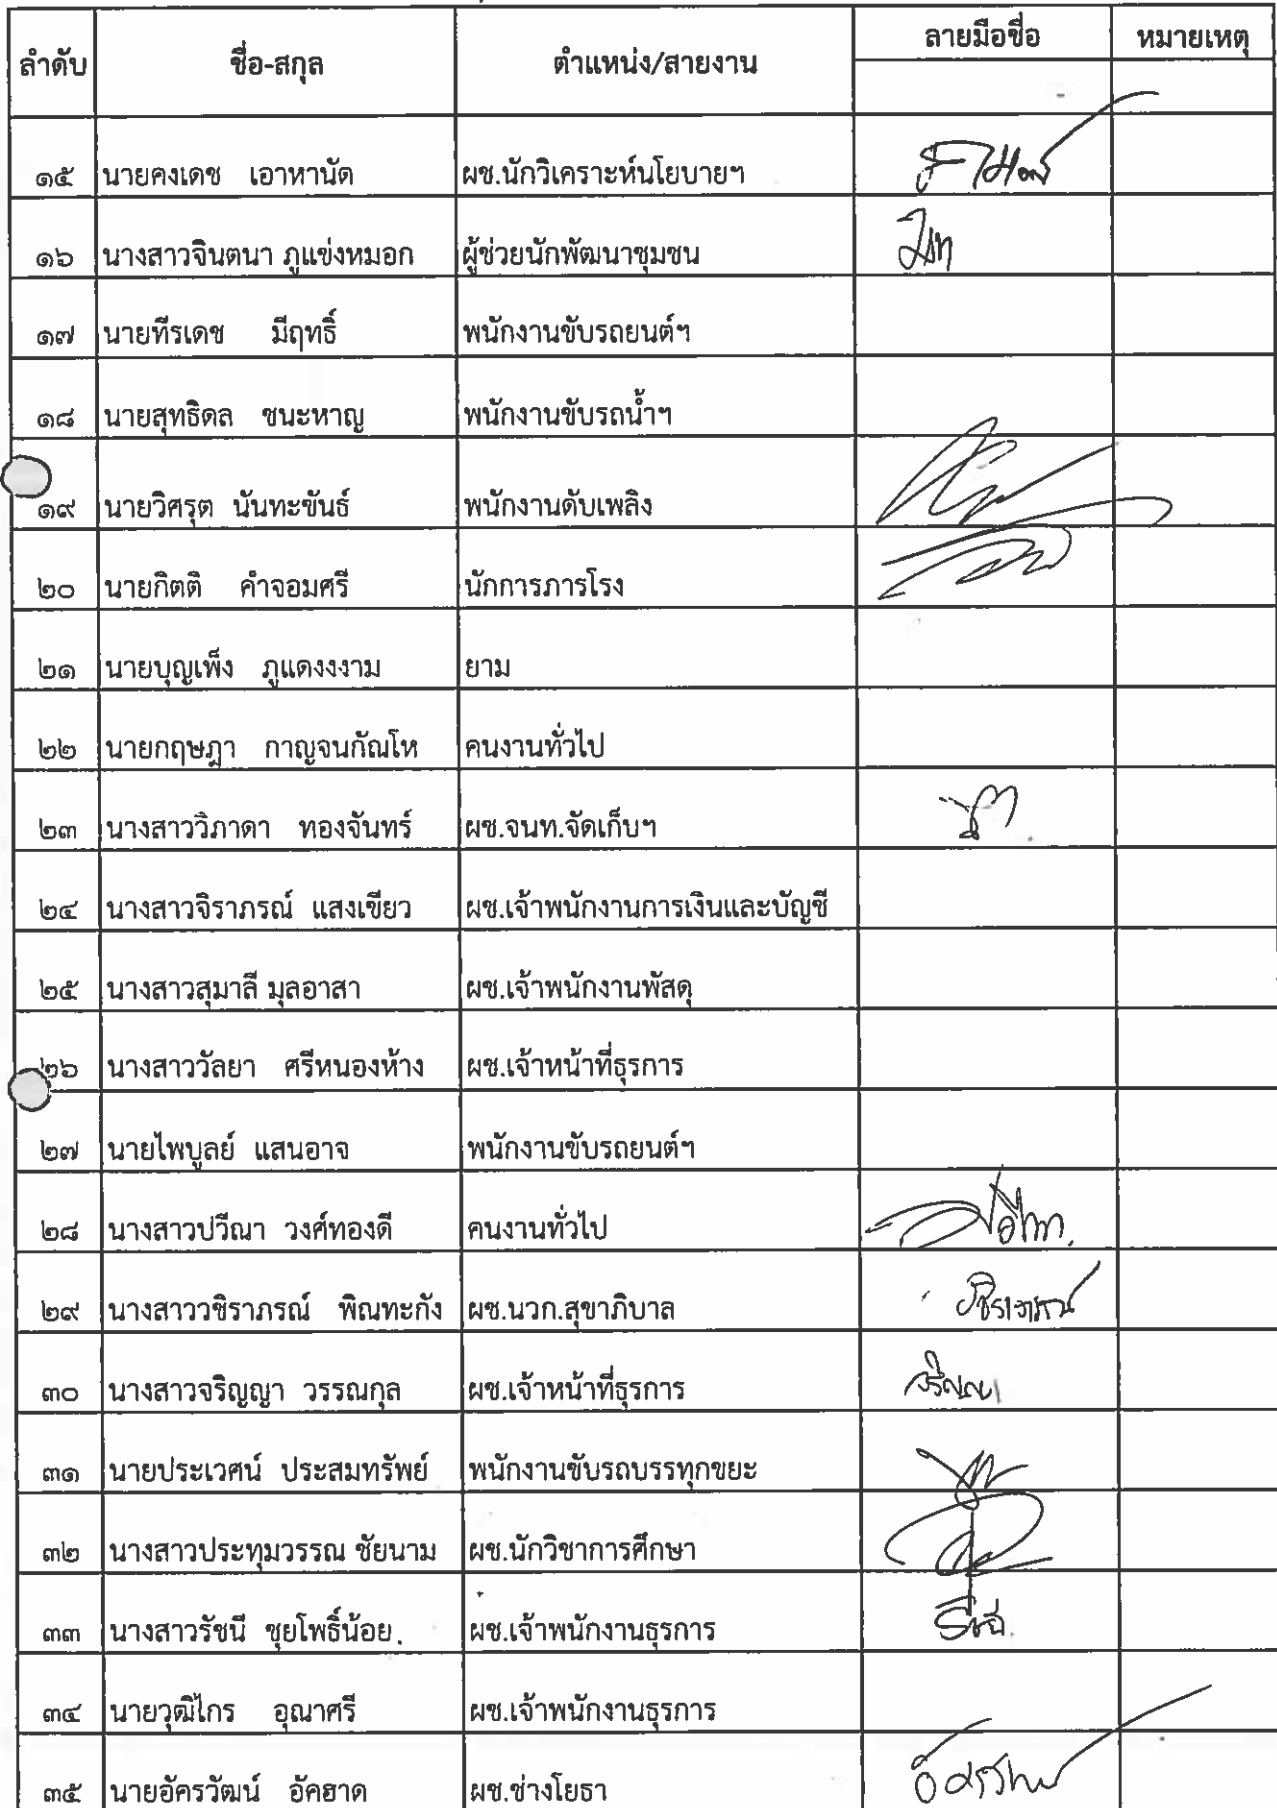 ลำดับ ชื่อ-สกุล ตำแหน่ง/สายงาน ลายมือชื่อ หมายเหตุ
๑๕ นายคงเดช เอาหานัด ผช.นักวิเคราะห์นโยบายฯ
๑๖ นางสาวจินตนา ภูแข่งหมอก ผู้ช่วยนักพัฒนาชุมชน
๑๗ นายทีรเดช มีฤทธิ์ พนักงานขับรถยนต์ฯ
๑๘ นายสุทธิดล ชนะหาญ พนักงานขับรถน้ำฯ
๑๙ นายวิศรุต นันทะขันธ์ พนักงานดับเพลิง
๒๐ นายกิตติ คำจอมศรี นักการภารโรง
๒๑ นายบุญเพ็ง ภูแดงงงาม ยาม
๒๒ นายกฤษฎา กาญจนกัณโห คนงานทั่วไป
๒๓ นางสาววิภาดา ทองจันทร์ ผช.จนท.จัดเก็บฯ
๒๔ นางสาวจิราภรณ์ แสงเขียว ผช.เจ้าพนักงานการเงินและบัญชี
๒๕ นางสาวสุมาลี มุลอาสา ผช.เจ้าพนักงานพัสดุ
๒๖ นางสาววัลยา ศรีหนองห้าง ผช.เจ้าหน้าที่ธุรการ
๒๗ นายไพบูลย์ แสนอาจ พนักงานขับรถยนต์ฯ
๒๘ นางสาวปวีณา วงศ์ทองดี คนงานทั่วไป
๒๙ นางสาววชิราภรณ์ พิณทะกัง ผช.นวก.สุขาภิบาล วชิราภรณ์
๓๐ นางสาวจริญญา วรรณกุล ผช.เจ้าหน้าที่ธุรการ จริญญา
๓๑ นายประเวศน์ ประสมทรัพย์ พนักงานขับรถบรรทุกขยะ
๓๒ นางสาวประทุมวรรณ ชัยนาม ผช.นักวิชาการศึกษา
๓๓ นางสาวรัชนี ชุยโพธิ์น้อย. ผช.เจ้าพนักงานธุรการ
๓๔ นายวุฒิไกร อุณาศรี ผช.เจ้าพนักงานธุรการ
๓๕ นายอัครวัฒน์ อัคฮาด ผช.ช่างโยธา